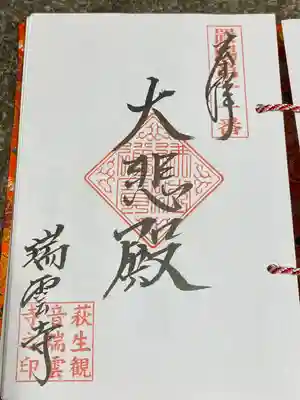 奉拝
大悲殿
瑞雲寺
萩生観
音瑞雲
寺之印